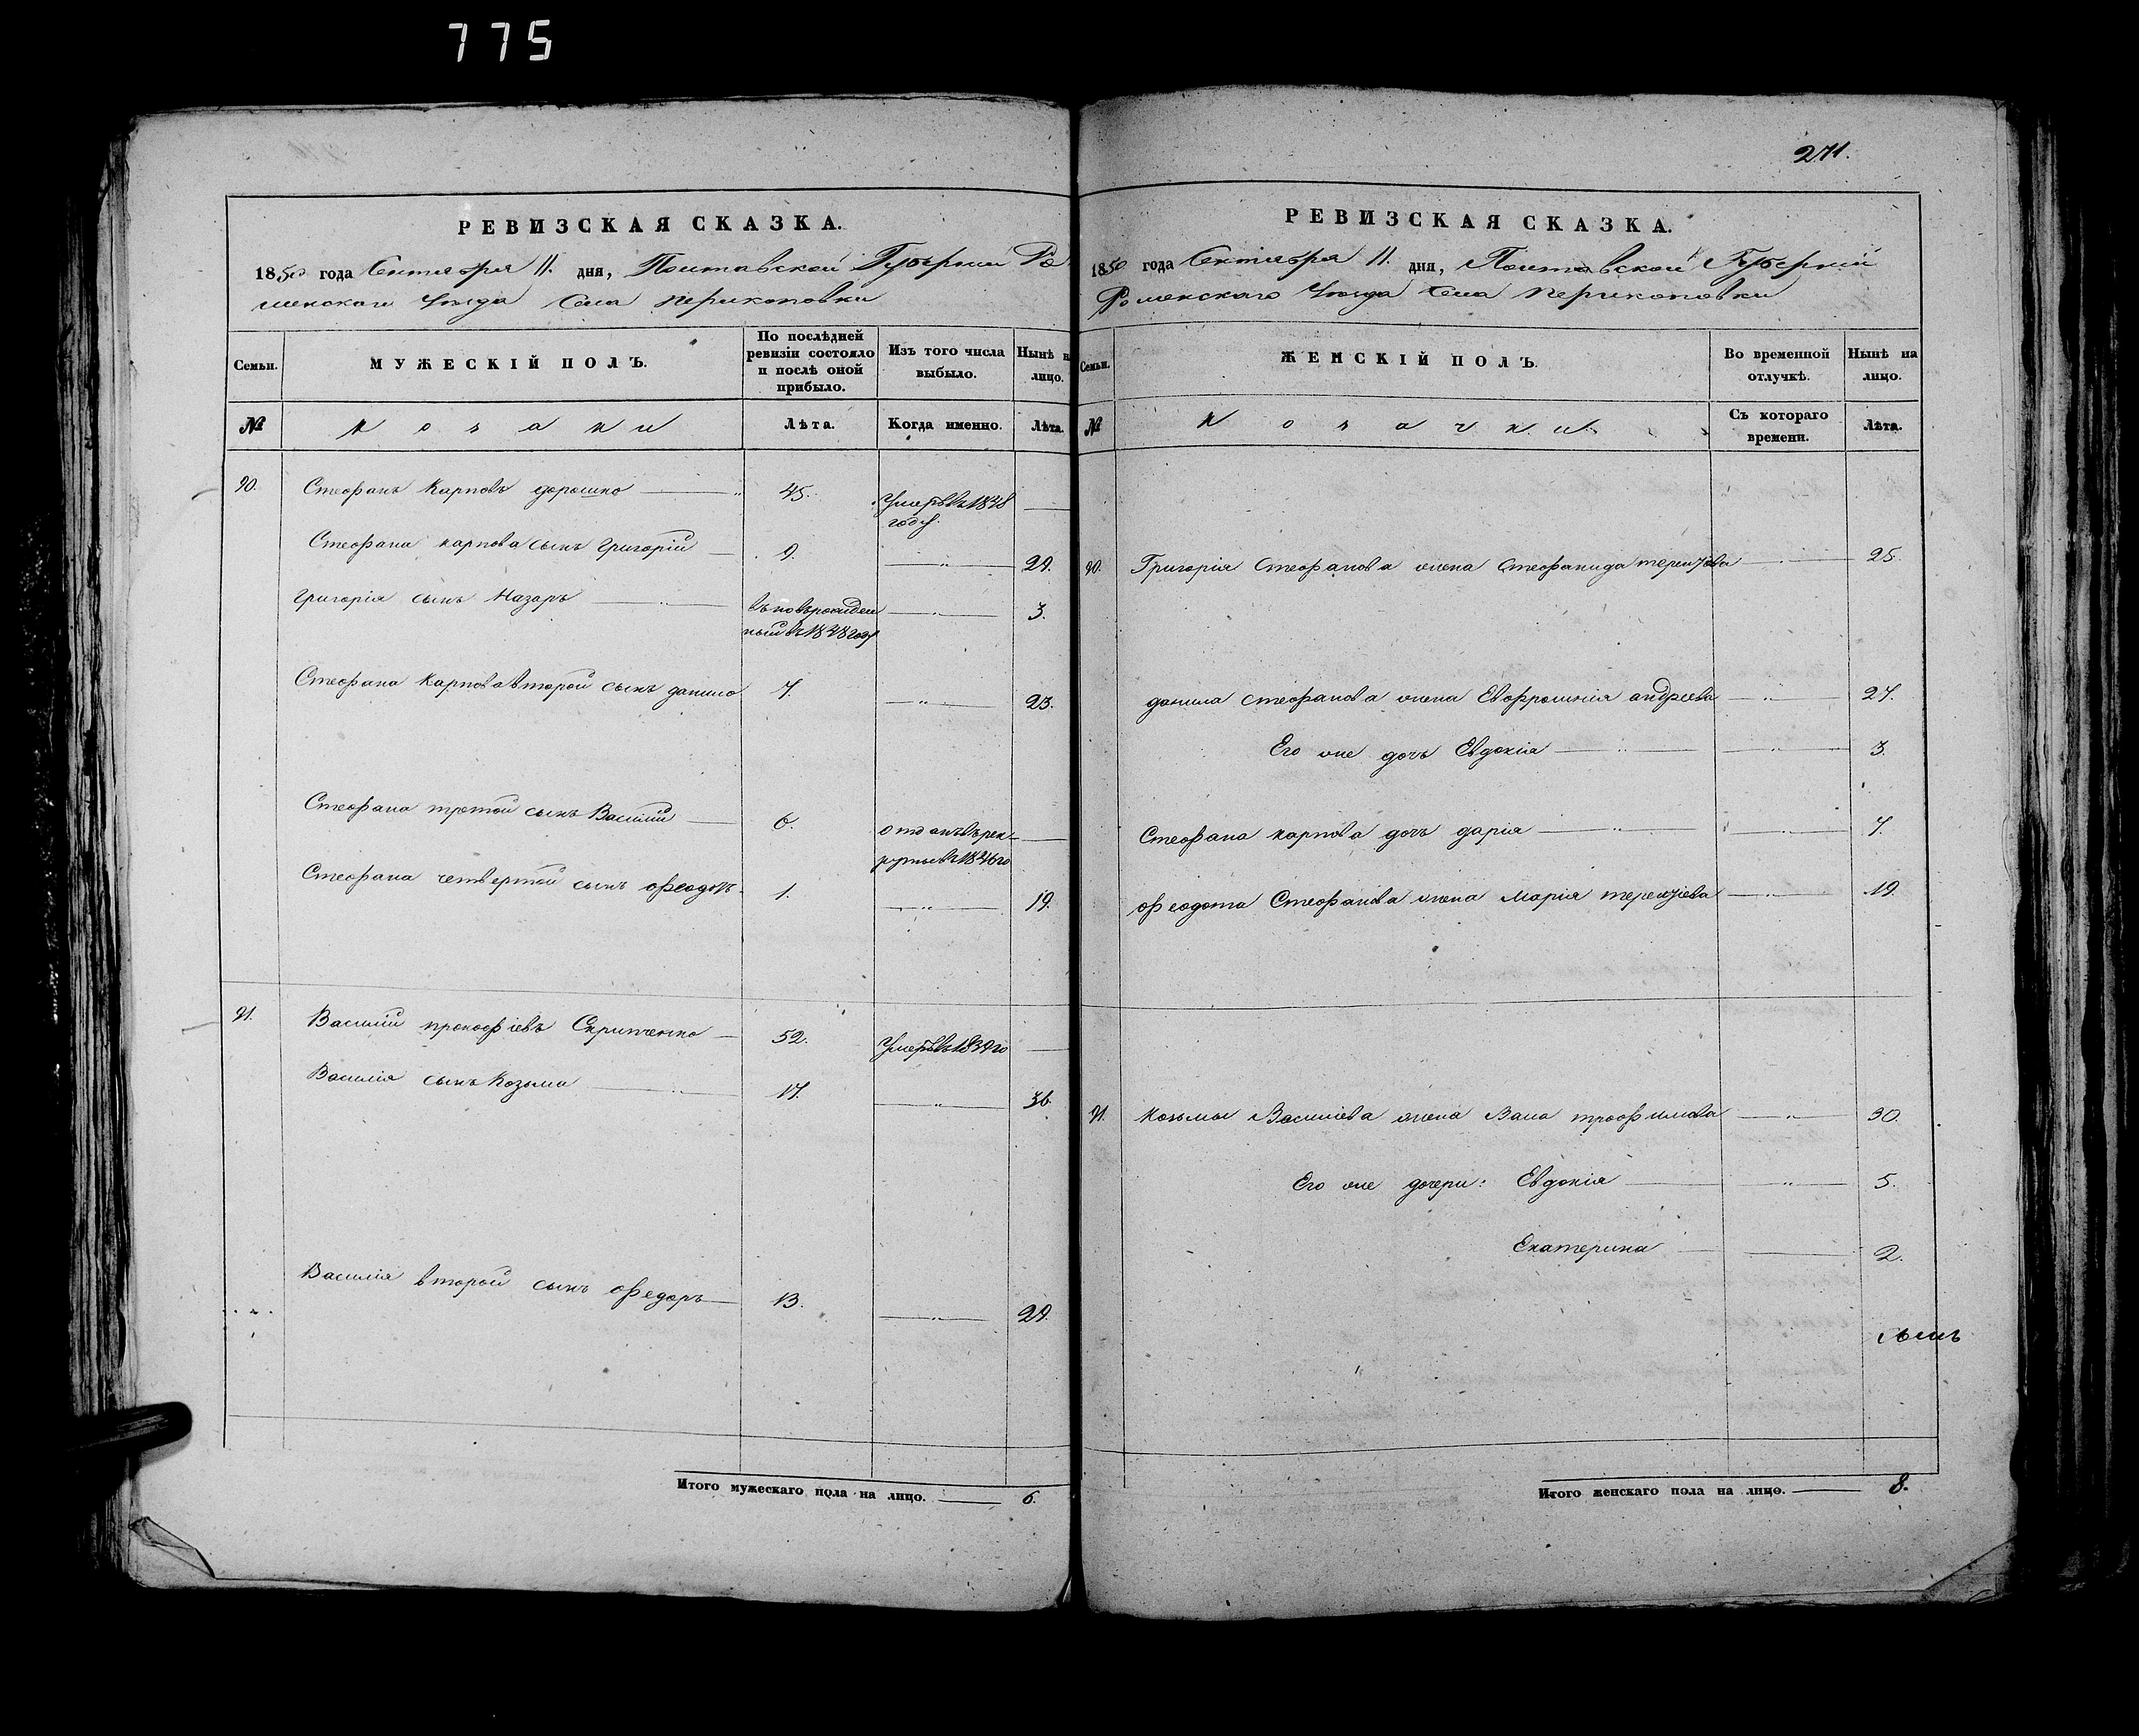 775
271.
РЕВИЗСКАЯ СКАЗКА.
1850 года Сентября 11. дня, Полтавской Губерніи Ро
менскаго Уѣзда Села Перекоповки
Семьи.
МУЖЕСКІЙ ПОЛЪ.
По послѣдней
ревизіи состояло
и послѣ оной
прибыло.
Изъ того числа
выбыло.
Нынѣ на
лицо.
№
Козаки
Лѣта.
Когда именно.
Лѣта.
90. Стефанъ Карповъ дорошко 45. Умеръ въ 1848
году.
Стефана карпова сынъ Григорій 9. 29.
Григорія сынъ Назаръ вновьрожден 3.
ный въ 1848 году
Стефана Карпова второй сынъ данило 7. 23.
Стефана третой сынъ Василій 6. отданъ въ рек
руты въ 1846 го
Стефана четвертой сынъ Феодотъ 1. 19.
91. Василій прокофіевъ Скрипченко 52. Умеръ въ 1839 го
Василія сынъ Козьма 17. 36.
Василія второй сынъ Федоръ 13. 29.
Итого мужескаго пола на лицо. 6.
РЕВИЗСКАЯ СКАЗКА.
1850 года Сентября 11. дня, Полтавской Губерніи
Роменскаго Уѣзда Села Перекоповки
Семьи.
ЖЕНСКІЙ ПОЛЪ.
Во временной
отлучкѣ.
Нынѣ на
лицо.
№
Козачки
Съ котораго
времени.
Лѣта.
90. Григорія Стефанова жена Стефанида терентіева 25.
данила стефанова жена Евфросинія андреева 27.
Его же дочь Евдокія 3.
Стефана карпова дочь дарія 7.
Феодота Стефанова жена Марія терентіева 19.
91. Козьмы Василіева жена трофимова 30.
Его же дочери: Евдокія 5.
Екатерина 2.
Итого женскаго пола на лицо. 8.